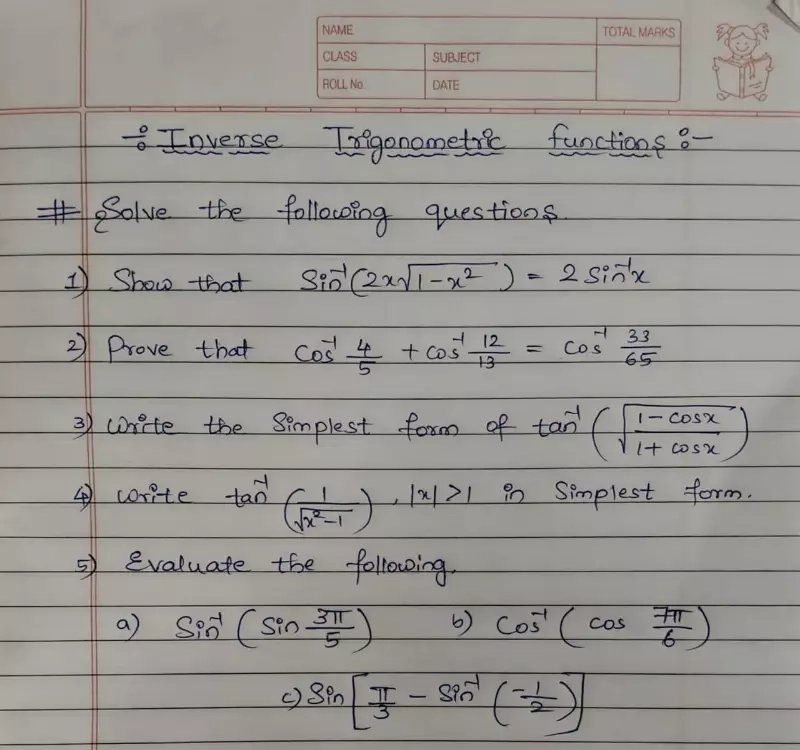 NAME TOTAL MARKS
CLASS SUBJECT
ROLL No. DATE
÷ Inverse Trigonometric functions :-
# Solve the following questions.
1) Show that Sin⁻¹(2x√(1-x²)) = 2 Sin⁻¹x
2) Prove that Cos⁻¹ 4/5 + Cos⁻¹ 12/13 = Cos⁻¹ 33/65
3) Write the Simplest form of tan⁻¹(√((1-cosx)/(1+cosx)))
4) Write tan⁻¹(1/√(x²-1)), |x|>1 in Simplest form.
5) Evaluate the following.
a) Sin⁻¹(Sin 3π/5) b) Cos⁻¹(cos 7π/6)
c) Sin[π/3 - Sin⁻¹(-1/2)]